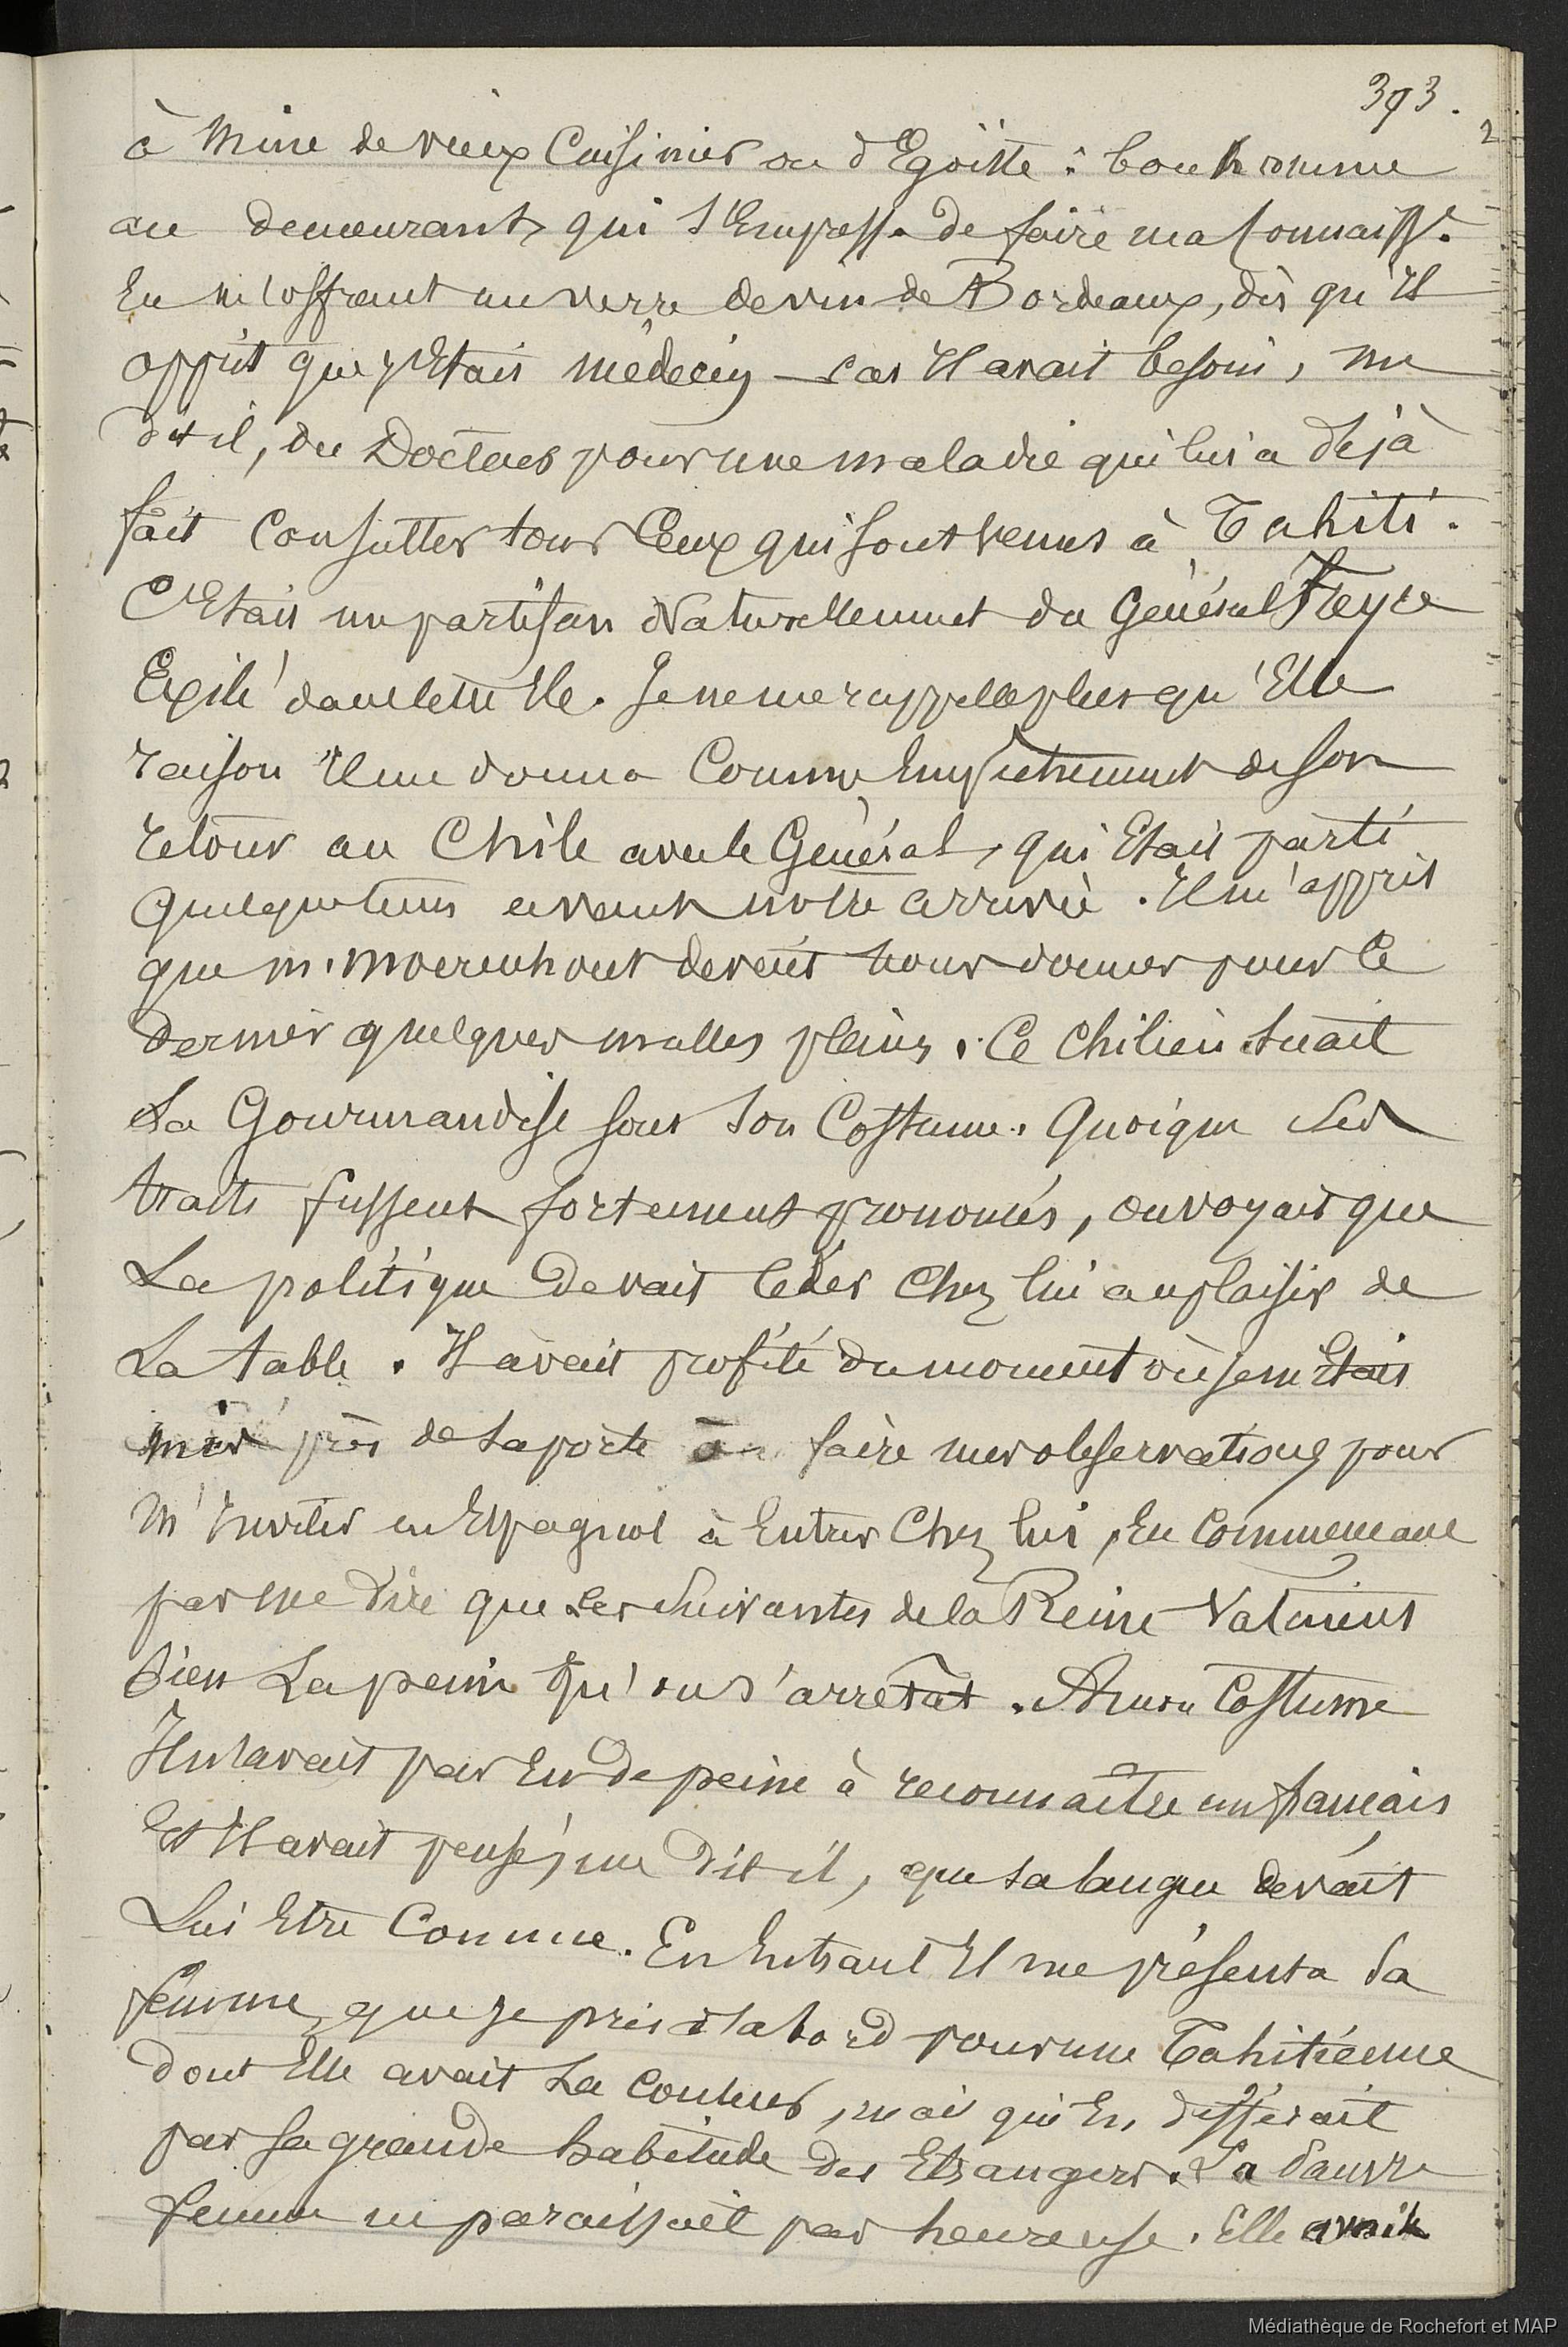 393.
2
à Mine de vieux Cuisinier ou d'Egöiste : bonhomme
au demeurant, qui s'Empressa de faire ma Connaiss.ce
En m'offrant un verre de vin de Bordeaux, dès qu'Il
apprit que j'Etais médecin – car Il avait besoin, me
dit il, du Docteur pour une maladie qui lui a déjà
fait Consulter tous Ceux qui sont venus à Tahiti.
C'Etait un partisan Naturellement du Général Freyre
Exilé dans cette Ile. Je ne me rappelle plus qu'Elle
raison Il me donna Comme Empêchement de son
retour au Chile avec le Général, qui Etait parti
Quelque tems avant notre arrivée. Il m'apprit
que m. Moerenhout devait nous donner pour Ce
dernier quelques malles pleines. Ce Chilien suait
La Gourmandise sous son Costume. Quoique Ses
traits fussent fortement prononcés, on voyait que
La politique devait Céder Chez lui au plaisir de
La table. Il avait profité du moment où je m'Etais
mis près de sa porte à faire mes observations pour
m'Inviter en Espagnol à Entrer Chez lui, En Commencant
par me dire que Les Suivantes de la Reine Valaient
bien La peine qu'on s'arretat. A mon Costume
Il n'avait pas Eu de peine à reconnaitre un français
Et Il avait pensé, me dit il, que sa langue devait
Lui Etre Connue. En Entrant Il me présenta sa
femme, que je pris d'abord pour une Tahitienne
dont Elle avait La Couleur, mais qui En differait
par sa grande habitude des Etrangers. La Pauvre
femme ne paraissait pas heureuse. Elle avait
Médiathèque de Rochefort et MAP